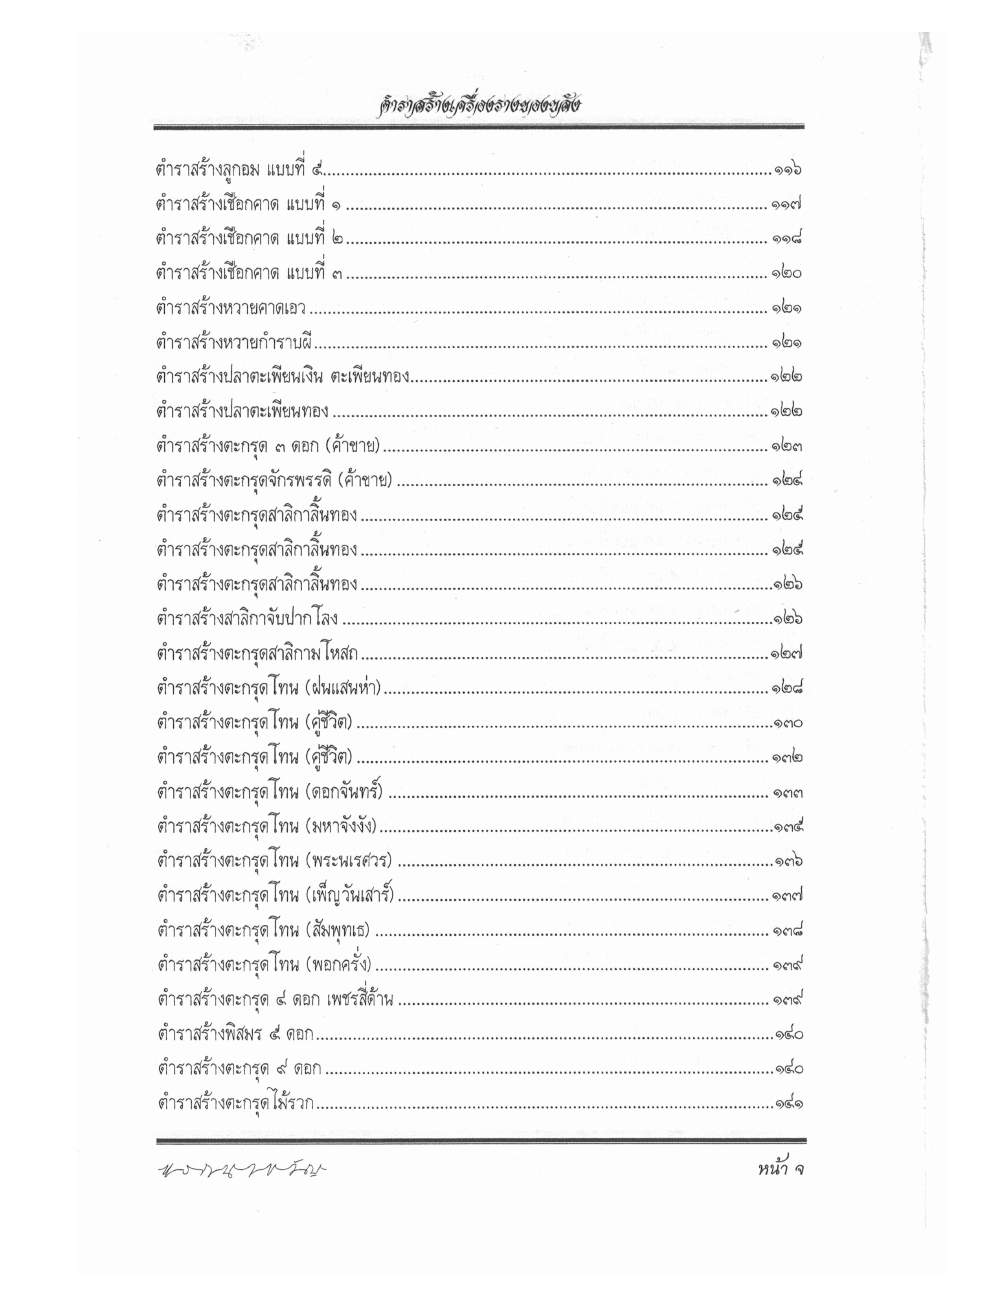 ตำราสร้างเครื่องรางของขลัง
ตำราสร้างลูกอม แบบที่ ๕..........๑๑๖
ตำราสร้างเชือกคาด แบบที่ ๑ .......... ๑๑๗
ตำราสร้างเชือกคาด แบบที่ ๒ .......... ๑๑๘
ตำราสร้างเชือกคาด แบบที่ ๓ .......... ๑๒๐
ตำราสร้างหวายคาดเอว .......... ๑๒๑
ตำราสร้างหวายกำราบผี .......... ๑๒๑
ตำราสร้างปลาตะเพียนเงิน ตะเพียนทอง.......... ๑๒๒
ตำราสร้างปลาตะเพียนทอง .......... ๑๒๒
ตำราสร้างตะกรุด ๓ ดอก (ค้าขาย) .......... ๑๒๓
ตำราสร้างตะกรุดจักรพรรดิ (ค้าขาย) .......... ๑๒๔
ตำราสร้างตะกรุดสาลิกาลิ้นทอง .......... ๑๒๕
ตำราสร้างตะกรุดสาลิกาลิ้นทอง .......... ๑๒๕
ตำราสร้างตะกรุดสาลิกาลิ้นทอง ..........๑๒๖
ตำราสร้างสาลิกาจับปากโลง ..........๑๒๖
ตำราสร้างตะกรุดสาลิกามโหสถ .......... ๑๒๗
ตำราสร้างตะกรุดโทน (ฝนแสนห่า) .......... ๑๒๘
ตำราสร้างตะกรุดโทน (คู่ชีวิต) ..........๑๓๐
ตำราสร้างตะกรุดโทน (คู่ชีวิต) .......... ๑๓๒
ตำราสร้างตะกรุดโทน (ดอกจันทร์) .......... ๑๓๓
ตำราสร้างตะกรุดโทน (มหาจังงัง) ..........๑๓๕
ตำราสร้างตะกรุดโทน (พระนเรศวร) ..........๑๓๖
ตำราสร้างตะกรุดโทน (เพ็ญวันเสาร์) .......... ๑๓๗
ตำราสร้างตะกรุดโทน (สัมพุทเธ) .......... ๑๓๘
ตำราสร้างตะกรุดโทน (พอกครั่ง) .......... ๑๓๙
ตำราสร้างตะกรุด ๔ ดอก เพชรสี่ด้าน .......... ๑๓๙
ตำราสร้างพิสมร ๕ ดอก ..........๑๔๐
ตำราสร้างตะกรุด ๙ ดอก ..........๑๔๐
ตำราสร้างตะกรุดไม้รวก ..........๑๔๑
หน้า จ